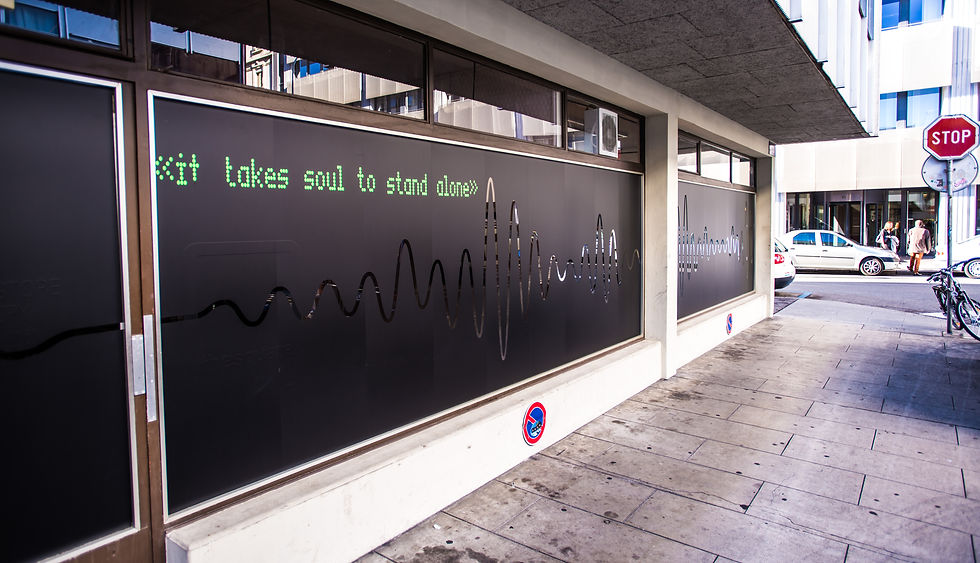 «it takes soul to stand alone»
STOP